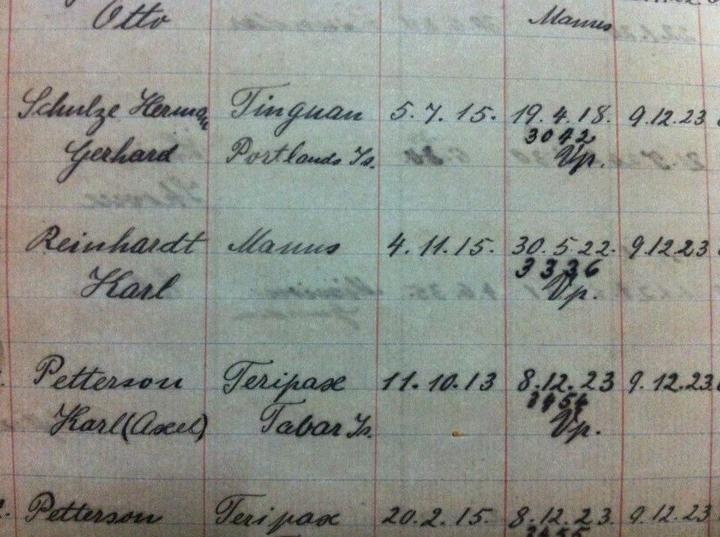 Otto Manus
Schulze Herman Tinguan 5.7.15. 19.4.18. 9.12.23
3042
Gerhard Portlands Is. Vp.
Reinhardt Manus 4.11.15. 30.5.22. 9.12.23
3336
Karl Vp.
Petterson Teripax 11.10.13 8.12.23 9.12.23.
3454
Karl (Axel) Tabar Is. Vp.
Petterson Teripax 20.2.15. 8.12.23. 9.12.23
3455